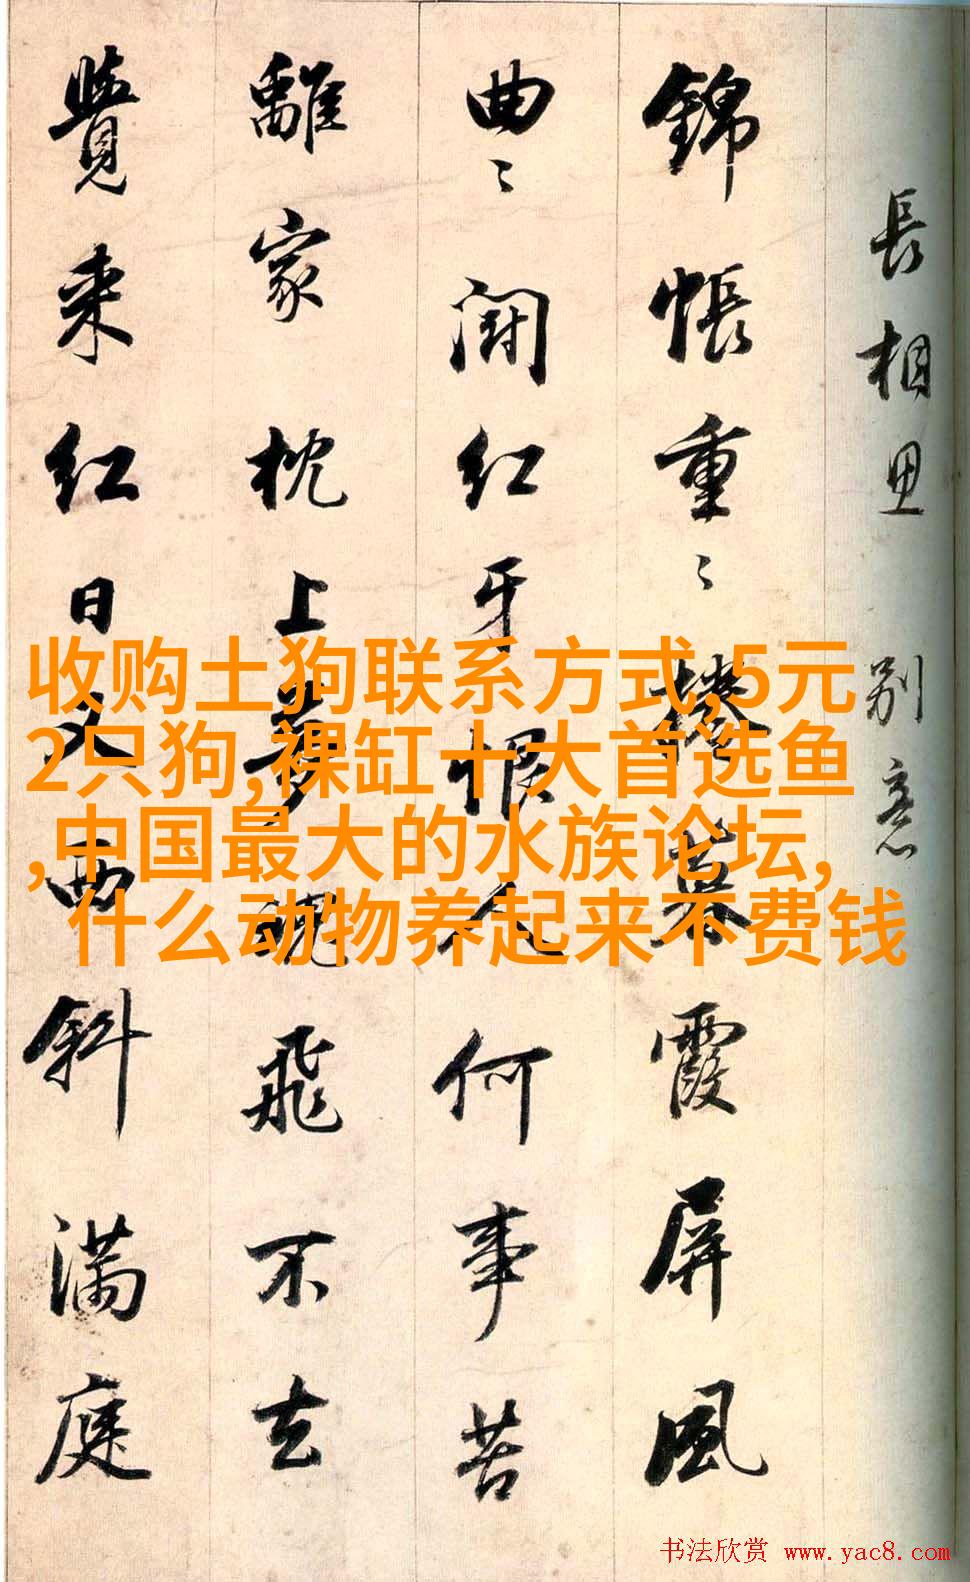 長相思 別意
錦帳重〻捲暮霞屏風
曲〻鬪紅牙恨人何事苦
離家枕上夢魂飛不去
覺来紅日又西斜滿庭
收购土狗联系方式,5元
2只狗,裸缸十大首选鱼
,中国最大的水族论坛,
什么动物养起来不费钱
书法欣赏 www.yac8.com